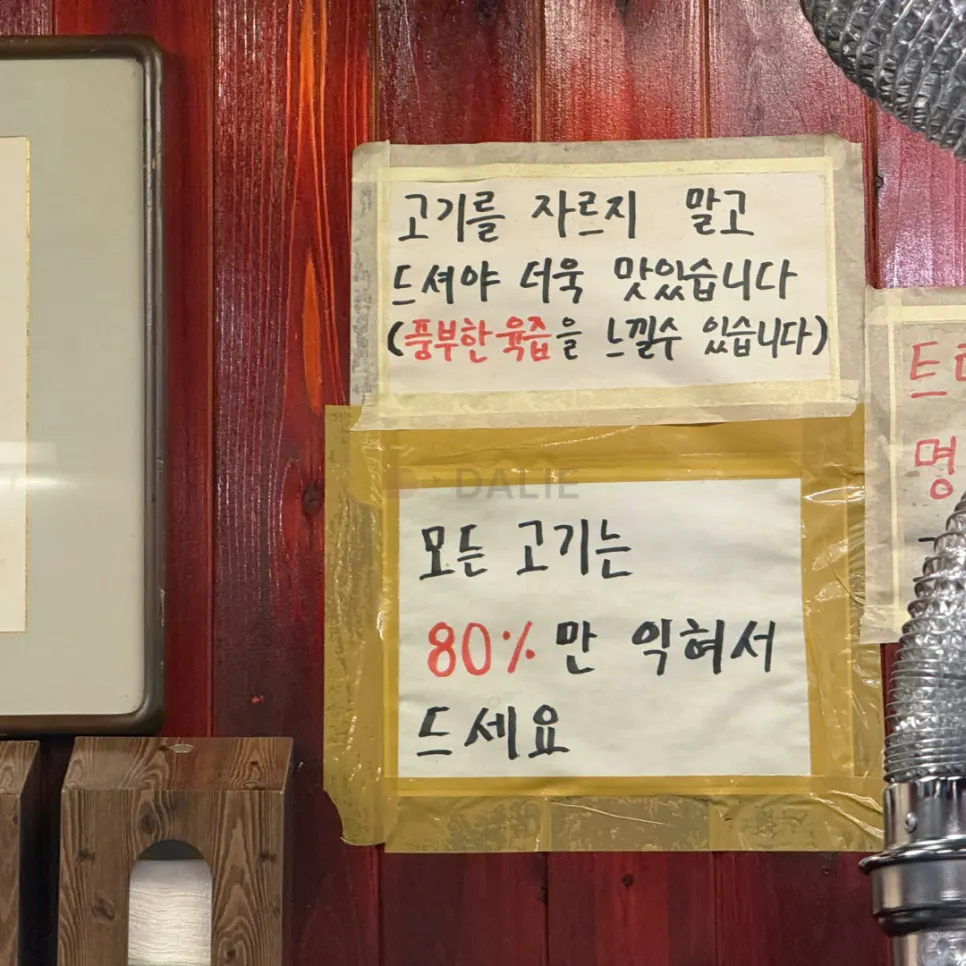 고기를 자르지 말고
드셔야 더욱 맛있습니다
(풍부한 육즙을 느낄수 있습니다)
DALIE
모든 고기는
80%만 익혀서
드세요
명